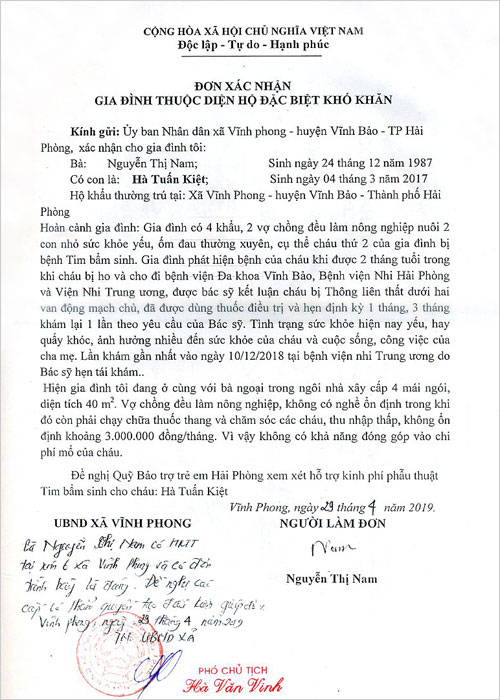 CỘNG HÒA XÃ HỘI CHỦ NGHĨA VIỆT NAM
Độc lập - Tự do - Hạnh phúc
ĐƠN XÁC NHẬN
GIA ĐÌNH THUỘC DIỆN HỘ ĐẶC BIỆT KHÓ KHĂN
Kính gửi: Ủy ban Nhân dân xã Vĩnh phong - huyện Vĩnh Bảo - TP Hải
Phòng, xác nhận cho gia đình tôi:
Bà: Nguyễn Thị Nam; Sinh ngày 24 tháng 12 năm 1987
Có con là: Hà Tuấn Kiệt; Sinh ngày 04 tháng 3 năm 2017
Hộ khẩu thường trú tại: Xã Vĩnh Phong - huyện Vĩnh Bảo - Thành phố Hải
Phòng
Hoàn cảnh gia đình: Gia đình có 4 khẩu, 2 vợ chồng đều làm nông nghiệp nuôi 2
con nhỏ sức khỏe yếu, ốm đau thường xuyên, cụ thể cháu thứ 2 của gia đình bị
bệnh Tim bẩm sinh. Gia đình phát hiện bệnh của cháu khi được 2 tháng tuổi trong
khi cháu bị ho và cho đi bệnh viện Đa khoa Vĩnh Bảo, Bệnh viện Nhi Hải Phòng
và Viện Nhi Trung ương, được bác sỹ kết luận cháu bị Thông liên thất dưới hai
van động mạch chủ, đã được dùng thuốc điều trị và hẹn định kỳ 1 tháng, 3 tháng
khám lại 1 lần theo yêu cầu của Bác sỹ. Tình trạng sức khỏe hiện nay yếu, hay
quấy khóc, ảnh hưởng nhiều đến sức khỏe của cháu và cuộc sống, công việc của
cha mẹ. Lần khám gần nhất vào ngày 10/12/2018 tại bệnh viện nhi Trung ương do
Bác sỹ hẹn tái khám..
Hiện gia đình tôi đang ở cùng với bà ngoại trong ngôi nhà xây cấp 4 mái ngói,
diện tích 40 m². Vợ chồng đều làm nông nghiệp, không có nghề ổn định trong khi
đó còn phải chạy chữa thuốc thang và chăm sóc các cháu, thu nhập thấp, không ổn
định khoảng 3.000.000 đồng/tháng. Vì vậy không có khả năng đóng góp vào chi
phí mổ của cháu.
Đề nghị Quỹ Bảo trợ trẻ em Hải Phòng xem xét hỗ trợ kinh phí phẫu thuật
Tim bẩm sinh cho cháu: Hà Tuấn Kiệt
Vĩnh Phong, ngày 29 tháng 4 năm 2019.
UBND XÃ VĨNH PHONG
NGƯỜI LÀM ĐƠN
Bà Nguyễn Thị Nam có HKTT
tại xóm 6 xã Vĩnh Phong và có đơn
trình bày là đúng. Đề nghị các
cấp có thẩm quyền tạo điều kiện giúp đỡ
Vĩnh phong, ngày 29 tháng 4 năm 2019
TM UBND XÃ
Nam
Nguyễn Thị Nam
PHÓ CHỦ TỊCH
Hà Văn Vinh